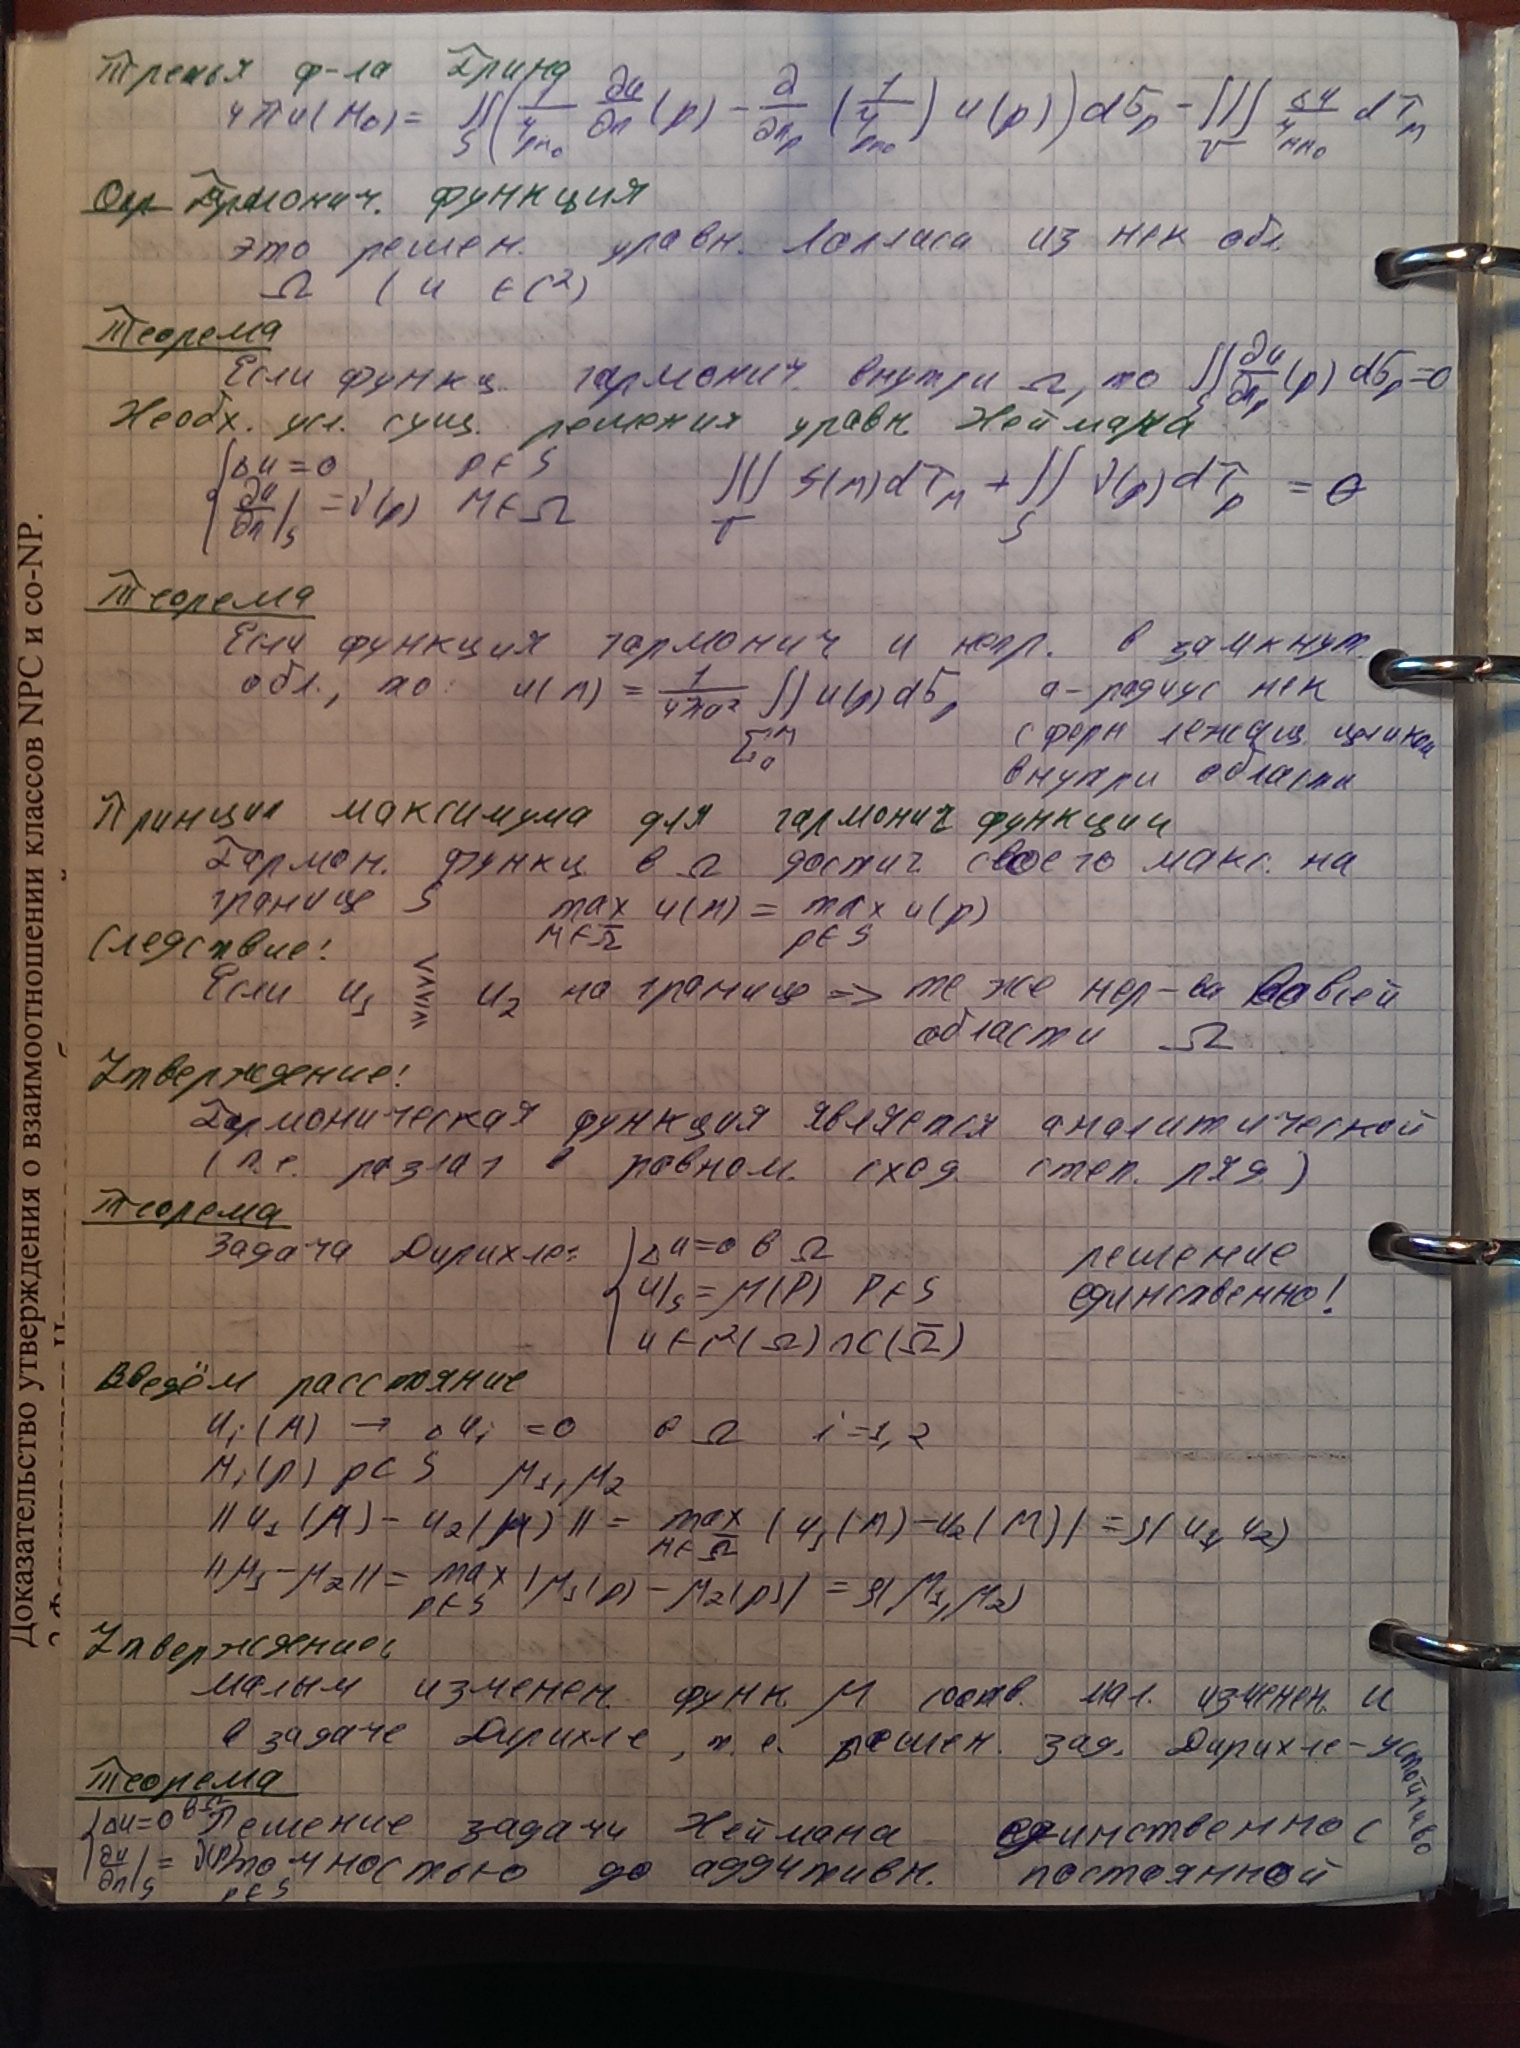 Третья ф-ла Грина
4πu(M₀) = ∬_S (1/r_{PM₀} ∂u/∂n (p) − ∂/∂n_p (1/r_{PM₀}) u(p)) dσ_p − ∭_V Δu/r_{MM₀} dτ_M
Опр Гармонич. функция
это решен. уравн. Лапласа из нек обл.
Ω (u ∈ C²)
Теорема
Если функц. гармонич. внутри Ω, то ∬_S ∂u/∂n_p (p) dσ_p = 0
Необх. усл. сущ. решения уравн Неймана
{ Δu = 0 P ∈ S
∂u/∂n|_S = ν(p) M ∈ Ω ∭_V f(M) dτ_M + ∬_S ν(p) dτ_p = 0
Теорема
Если функция гармонич и непр. в замкнут.
обл., то: u(M) = 1/4πa² ∬_{Σ_a^M} u(p) dσ_p a – радиус нек
сферы лежащ. целиком
внутри области
Принцип максимума для гармонич функции
Гармон. функц в Ω достиг. своего макс. на
границе S max_{M∈Ω̄} u(M) = max_{p∈S} u(p)
Следствие:
Если u₁ ⩽ ⩾ u₂ на границе => те же нер-ва во всей
области Ω
Утверждение:
Гармоническая функция является аналитической
(т.е. разлаг в равном. сход. степ. ряд)
Теорема
Задача Дирихле: { Δu = 0 в Ω решение
u|_S = μ(P) P ∈ S единственно!
u ∈ C²(Ω) ∩ C(Ω̄)
Введём расстояние
u_i(M) → Δu_i = 0 в Ω i = 1, 2
μ_i(p) p ∈ S μ₁, μ₂
||u₁(M) − u₂(M)|| = max_{M∈Ω̄} |u₁(M) − u₂(M)| = ρ(u₁, u₂)
||μ₁ − μ₂|| = max_{p∈S} |μ₁(p) − μ₂(p)| = ρ(μ₁, μ₂)
Утверждение:
Малым изменен. функ. μ соотв. мал. изменен. u
в задаче Дирихле, т.е. решен. зад. Дирихле – устойчиво
Теорема
{ Δu = 0 в Ω Решение задачи Неймана единственно с
∂u/∂n|_S = ν(p) p ∈ S точностью до аддитивн. постоянной
Доказательство утверждения о взаимоотношении классов NPC и co-NP.